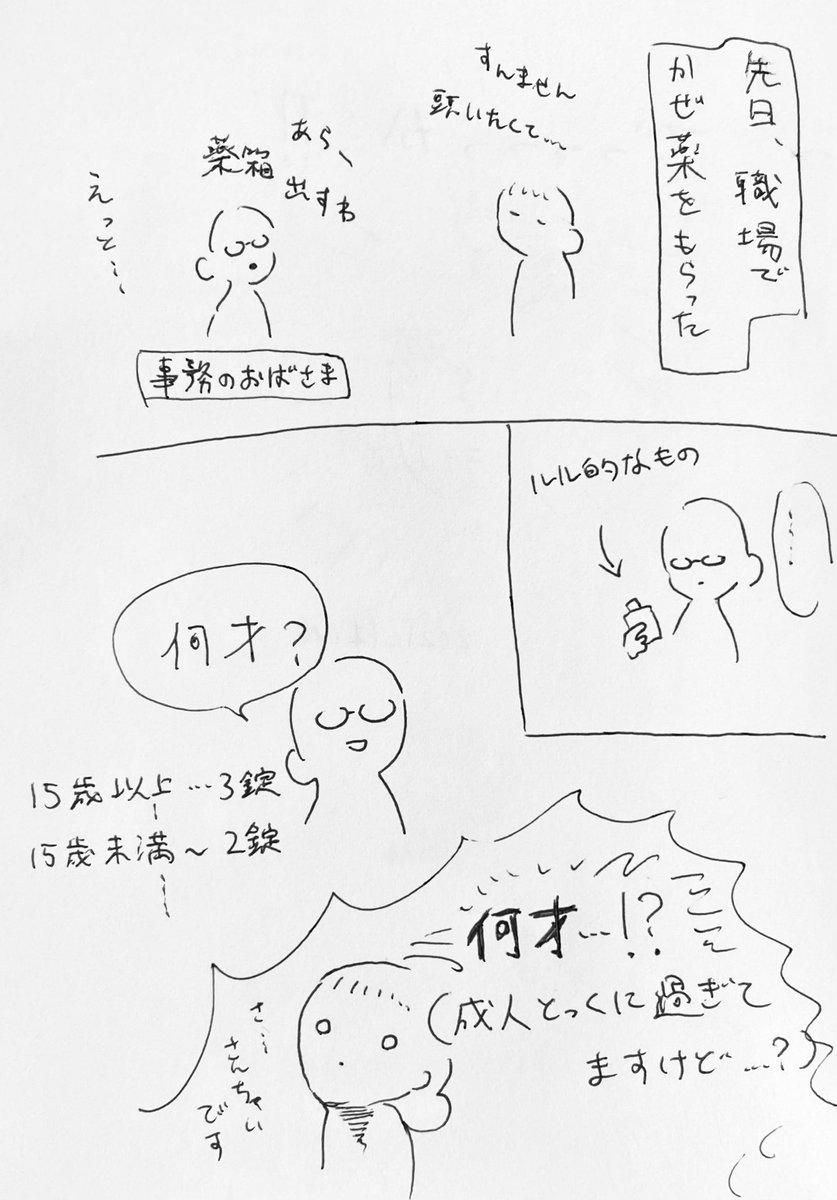 先日、職場で
かぜ薬をもらった
すんません
頭いたくて…
あら、
薬箱
出すわ
えっと…
事務のおばさま
ルル的なもの
……
何才？
15歳以上…3錠
15歳未満〜2錠
何才…!?
(成人とっくに過ぎて
ますけど…?)
さ…
さんちゃい
です